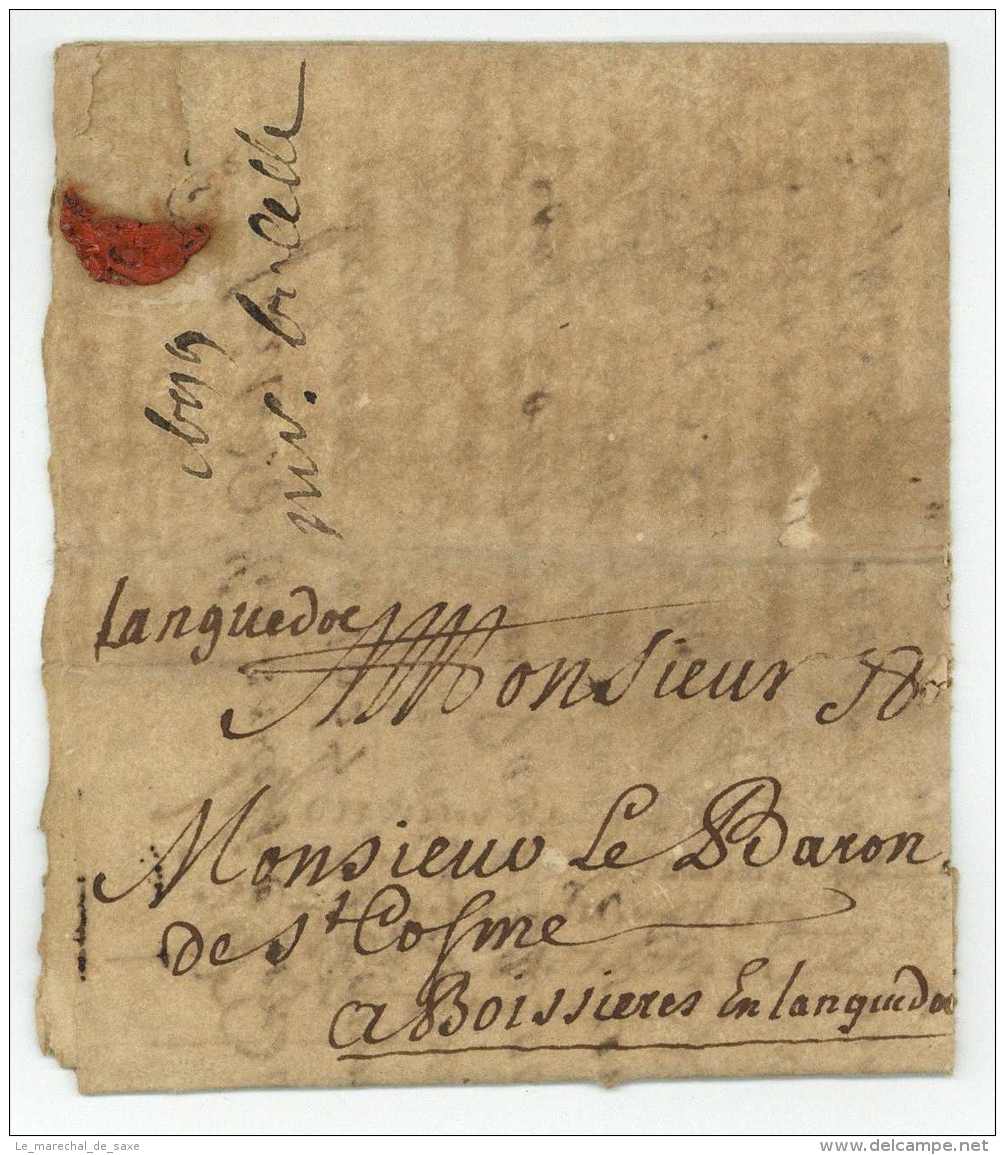 Languedoc
Monsieur
Monsieur Le Baron
de St Cosme
a Boissieres En languedoc
Le_marechal_de_saxe
www.delcampe.net